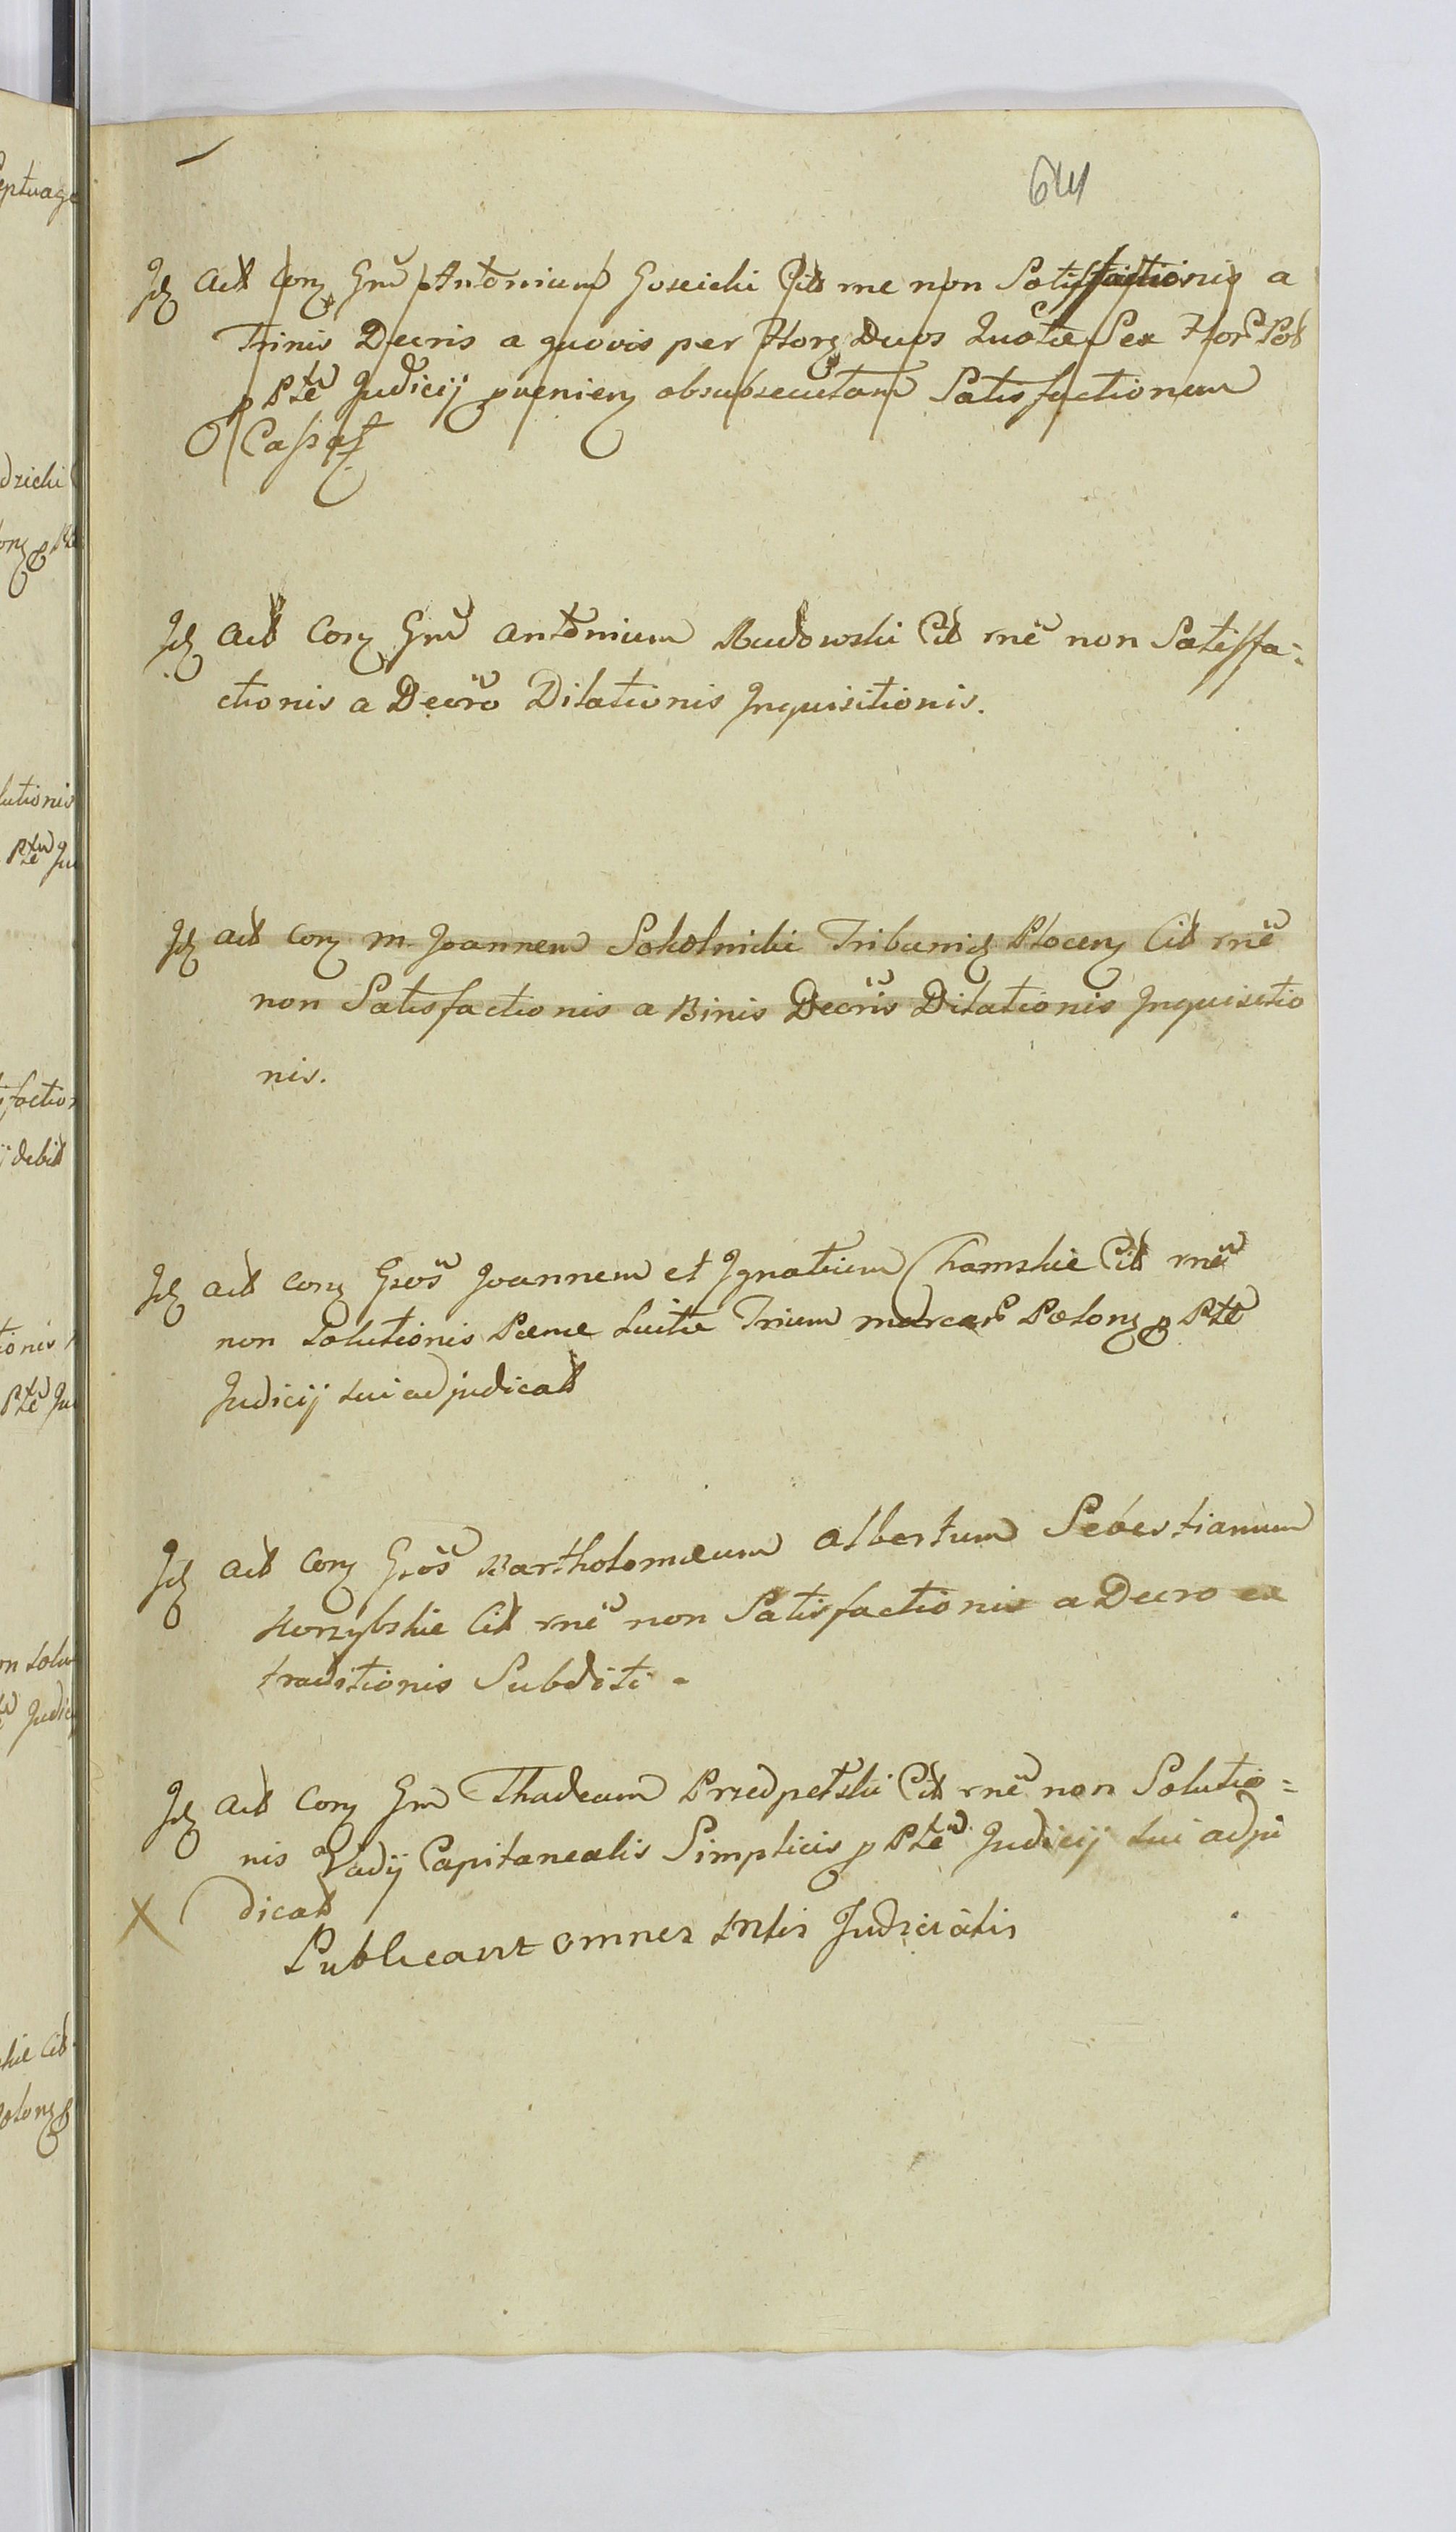 64
Id Act Con Gnm Antonium Goscicki Cit rne non Satisfactionis a
Trinis Decris a quovis per Flor Duos Quotæ Sex Flor Pol
p Pte Judicij pvenien obsubsecutam Satisfactionem
Cassat
Id Act Con Gnm Antonium Rudowski Cit rne non Satisfa:
ctionis a Decro Dilationis Inquisitionis.
Id act Con M. Joannem Sokolnicki Tribunid Plocen Cit rne
non Satisfactionis a Binis Decris Dilationis Inquisitio
nis.
Id act Con Gsos Joannem et Ignatium Chamskie Cit rne
non Solutionis Pænæ Luitæ Trium marcar Polon p Pte
Judicij sui adjudicat
Id act Con Gsos Bartholomæum Albertum Sebestianum
Korzybskie Cit rne non Satisfactionis a Decro ex
traditionis Subditi.
Id act Con Gnm Thadeum Przedpełski Cit rne non Solutio=
nis Vadij Capitanealis Simplicis p Pte Judicij sui adju
X dicat
Publicavit omnes Judicialis